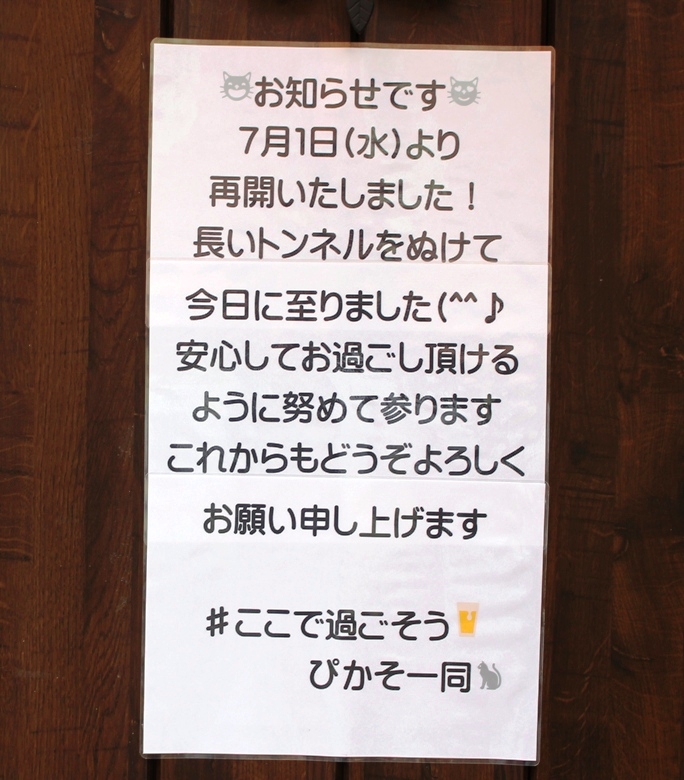 😺お知らせです😺
7月1日(水)より
再開いたしました！
長いトンネルをぬけて
今日に至りました(^^♪
安心してお過ごし頂ける
ように努めて参ります
これからもどうぞよろしく
お願い申し上げます
#ここで過ごそう🍺
ぴかそ一同🐈